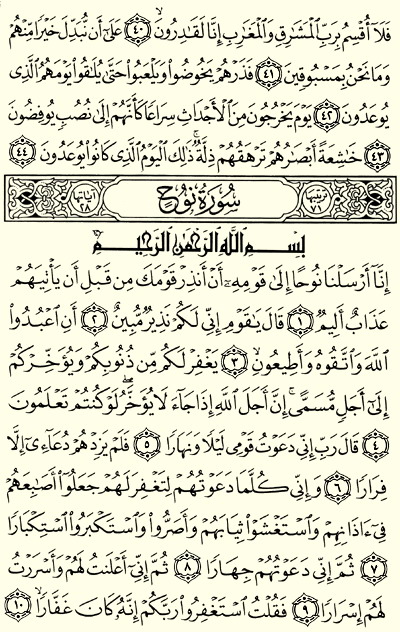 فَلَآ أُقْسِمُ بِرَبِّ ٱلْمَشَٰرِقِ وَٱلْمَغَٰرِبِ إِنَّا لَقَٰدِرُونَ ۝٤٠ عَلَىٰٓ أَن نُّبَدِّلَ خَيْرًا مِّنْهُمْ
وَمَا نَحْنُ بِمَسْبُوقِينَ ۝٤١ فَذَرْهُمْ يَخُوضُوا۟ وَيَلْعَبُوا۟ حَتَّىٰ يُلَٰقُوا۟ يَوْمَهُمُ ٱلَّذِى
يُوعَدُونَ ۝٤٢ يَوْمَ يَخْرُجُونَ مِنَ ٱلْأَجْدَاثِ سِرَاعًا كَأَنَّهُمْ إِلَىٰ نُصُبٍ يُوفِضُونَ
۝٤٣ خَٰشِعَةً أَبْصَٰرُهُمْ تَرْهَقُهُمْ ذِلَّةٌ ۚ ذَٰلِكَ ٱلْيَوْمُ ٱلَّذِى كَانُوا۟ يُوعَدُونَ ۝٤٤
ترتيبها ٧١ سُورَةُ نُوحٍ آياتها ٢٨
بِسْمِ ٱللَّهِ ٱلرَّحْمَٰنِ ٱلرَّحِيمِ
إِنَّآ أَرْسَلْنَا نُوحًا إِلَىٰ قَوْمِهِۦٓ أَنْ أَنذِرْ قَوْمَكَ مِن قَبْلِ أَن يَأْتِيَهُمْ
عَذَابٌ أَلِيمٌ ۝١ قَالَ يَٰقَوْمِ إِنِّى لَكُمْ نَذِيرٌ مُّبِينٌ ۝٢ أَنِ ٱعْبُدُوا۟
ٱللَّهَ وَٱتَّقُوهُ وَأَطِيعُونِ ۝٣ يَغْفِرْ لَكُم مِّن ذُنُوبِكُمْ وَيُؤَخِّرْكُمْ
إِلَىٰٓ أَجَلٍ مُّسَمًّى ۚ إِنَّ أَجَلَ ٱللَّهِ إِذَا جَآءَ لَا يُؤَخَّرُ ۖ لَوْ كُنتُمْ تَعْلَمُونَ
۝٤ قَالَ رَبِّ إِنِّى دَعَوْتُ قَوْمِى لَيْلًا وَنَهَارًا ۝٥ فَلَمْ يَزِدْهُمْ دُعَآءِىٓ إِلَّا
فِرَارًا ۝٦ وَإِنِّى كُلَّمَا دَعَوْتُهُمْ لِتَغْفِرَ لَهُمْ جَعَلُوٓا۟ أَصَٰبِعَهُمْ
فِىٓ ءَاذَانِهِمْ وَٱسْتَغْشَوْا۟ ثِيَابَهُمْ وَأَصَرُّوا۟ وَٱسْتَكْبَرُوا۟ ٱسْتِكْبَارًا
۝٧ ثُمَّ إِنِّى دَعَوْتُهُمْ جِهَارًا ۝٨ ثُمَّ إِنِّىٓ أَعْلَنتُ لَهُمْ وَأَسْرَرْتُ
لَهُمْ إِسْرَارًا ۝٩ فَقُلْتُ ٱسْتَغْفِرُوا۟ رَبَّكُمْ إِنَّهُۥ كَانَ غَفَّارًا ۝١٠